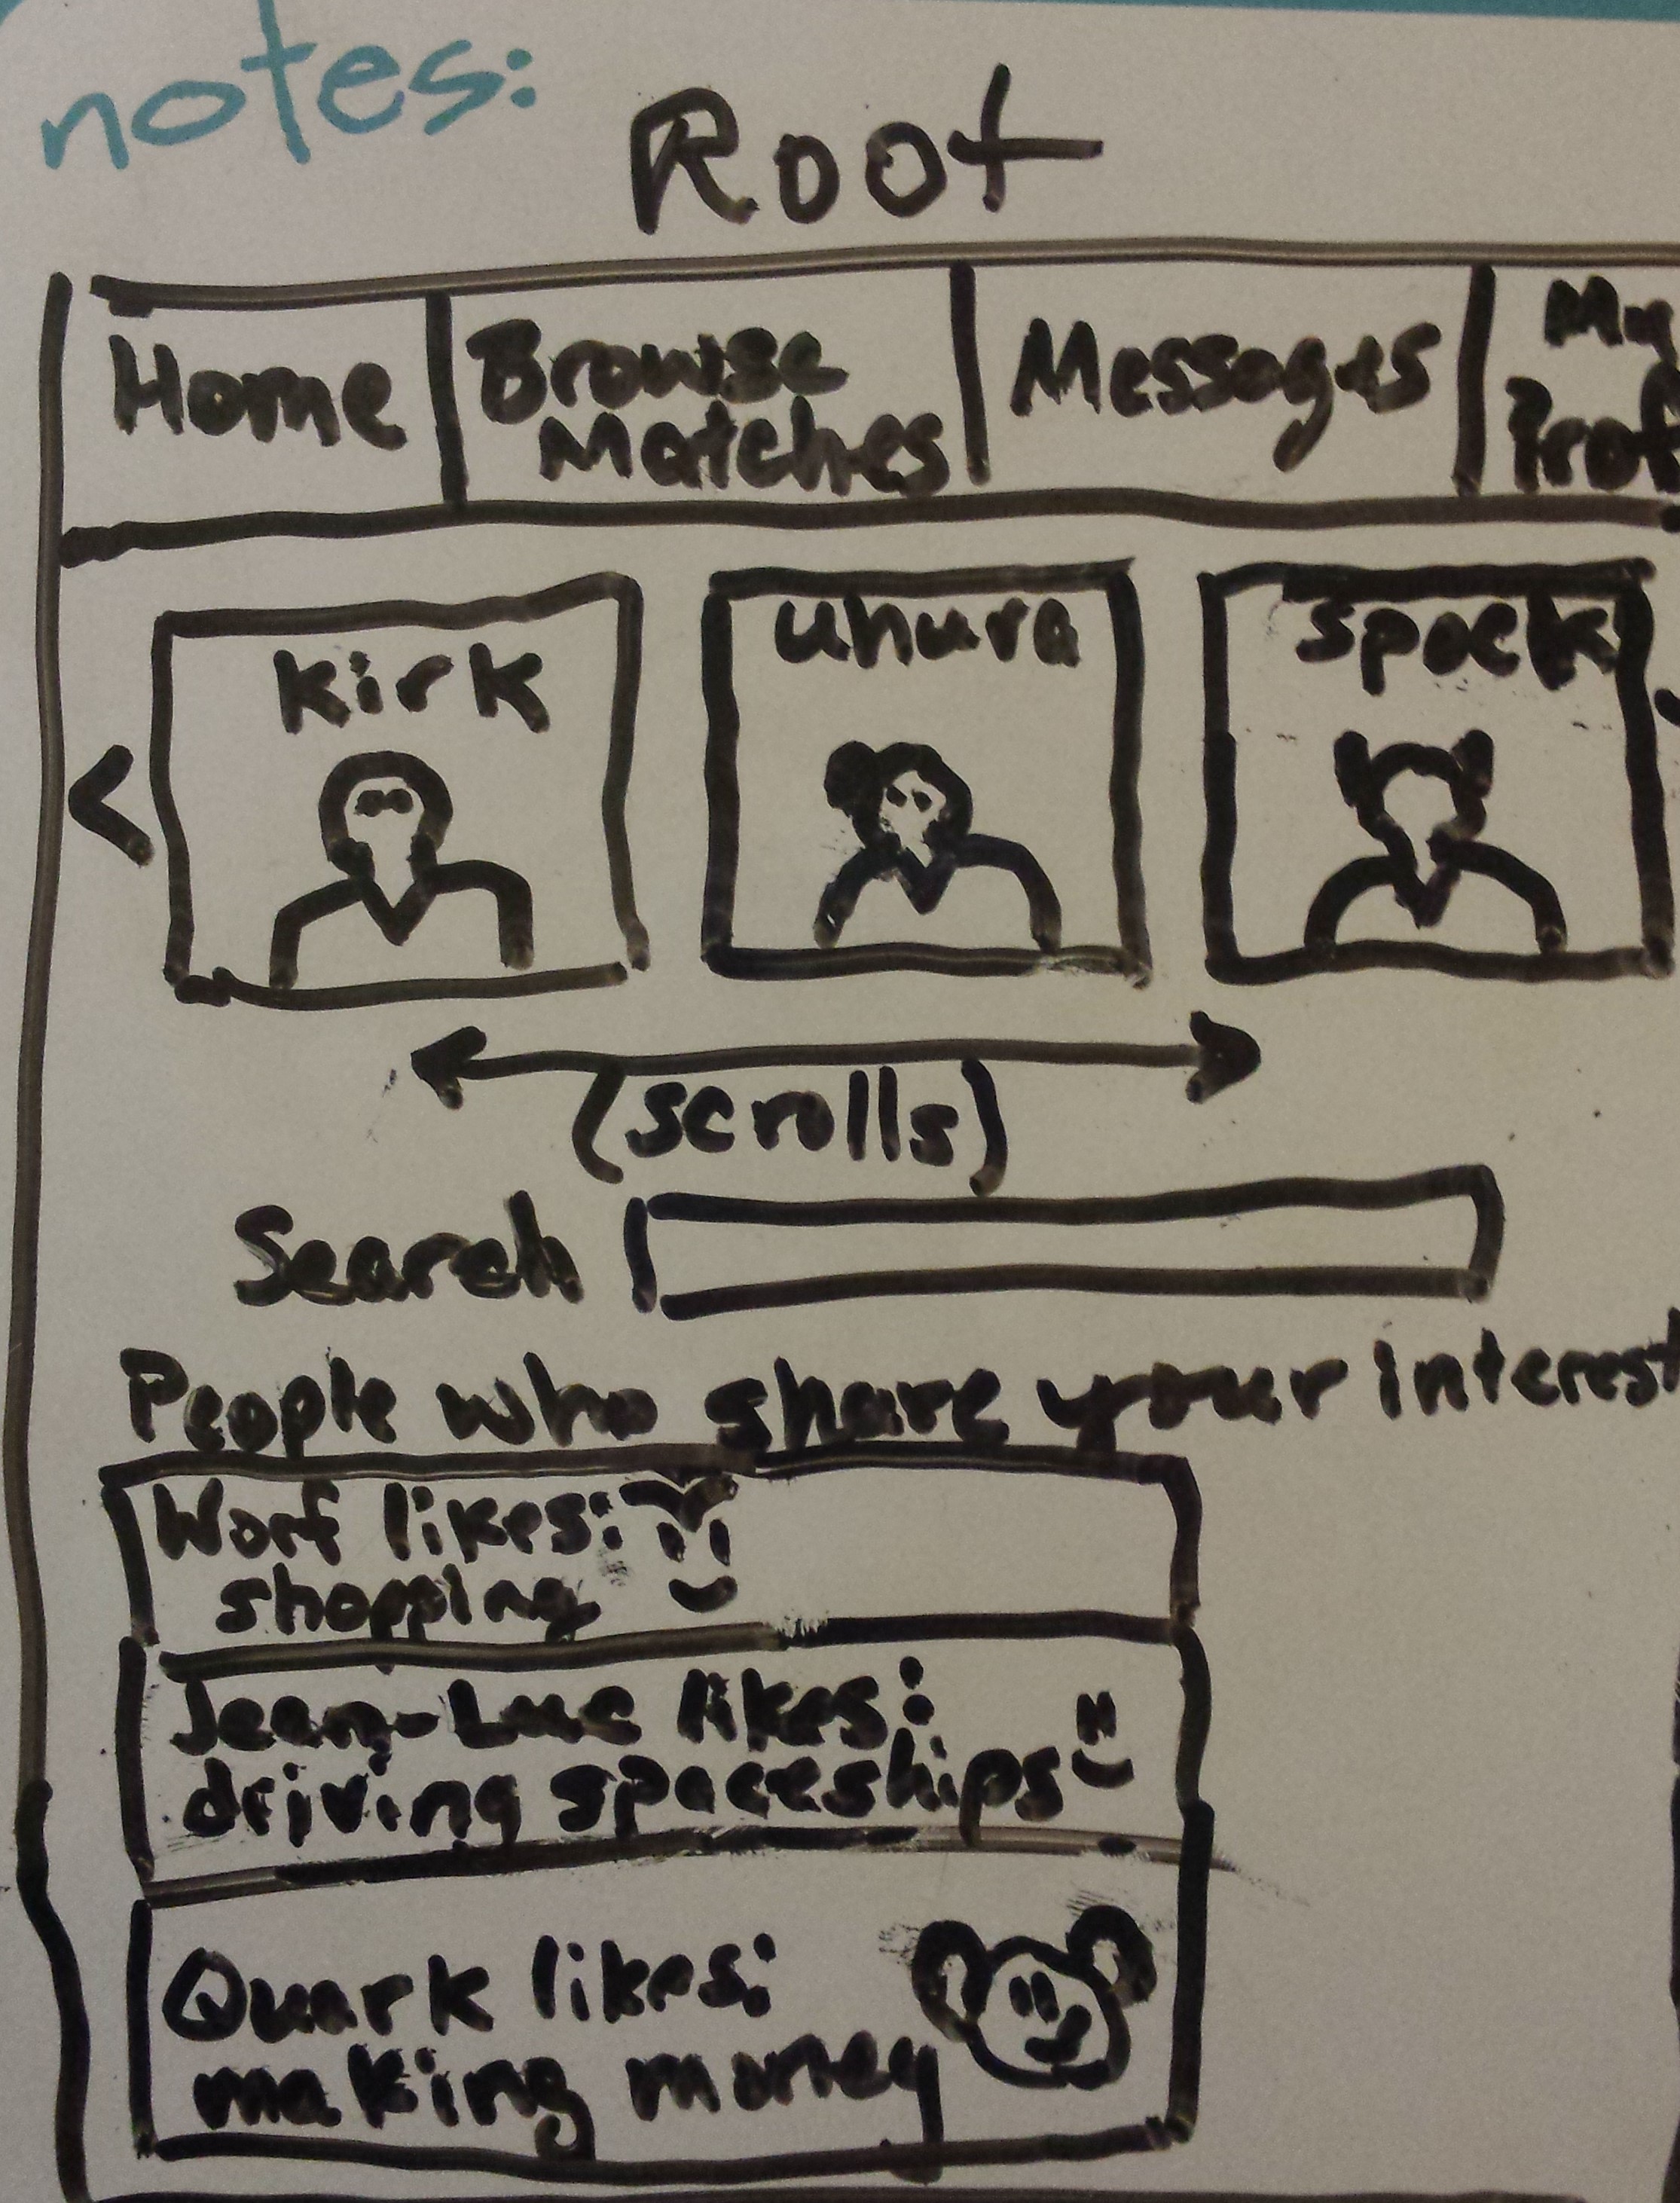 notes:
Root
Home
Browse
Matches
Messages
My
Prof
Kirk
uhura
spock
<
(scrolls)
Search
People who share your interest
Worf likes:
shopping
Jean-Luc likes:
driving spaceships
Quark likes:
making money